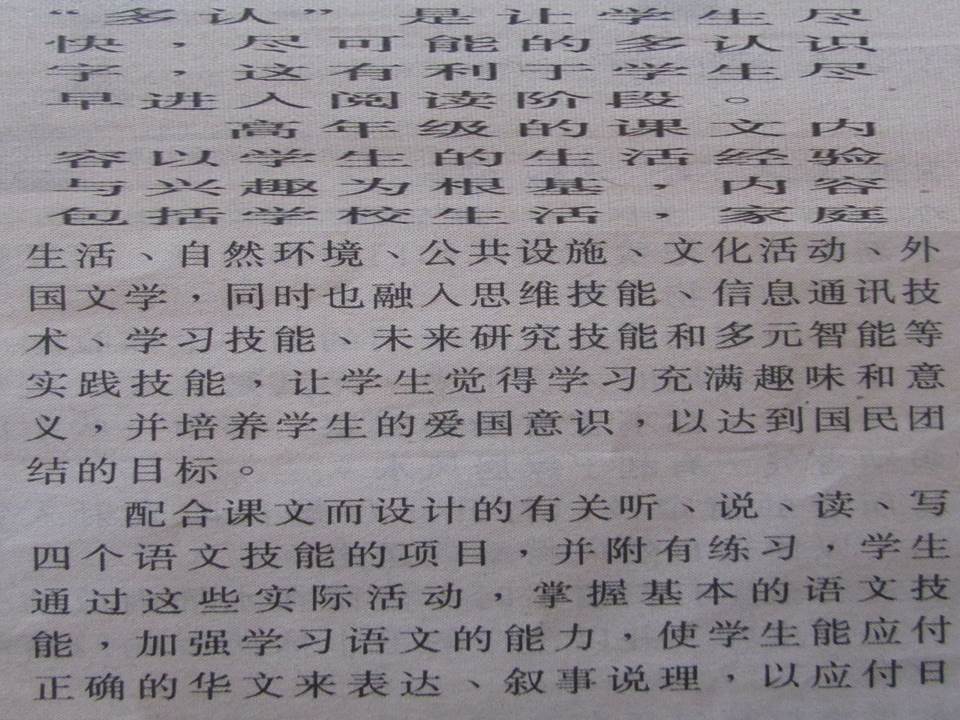 “多认”是让学生尽
快，尽可能的多认识
字，这有利于学生尽
早进入阅读阶段。
高年级的课文内
容以学生的生活经验
与兴趣为根基，内容
包括学校生活，家庭
生活、自然环境、公共设施、文化活动、外
国文学，同时也融入思维技能、信息通讯技
术、学习技能、未来研究技能和多元智能等
实践技能，让学生觉得学习充满趣味和意
义，并培养学生的爱国意识，以达到国民团
结的目标。
配合课文而设计的有关听、说、读、写
四个语文技能的项目，并附有练习，学生
通过这些实际活动，掌握基本的语文技
能，加强学习语文的能力，使学生能应付
正确的华文来表达、叙事说理，以应付日